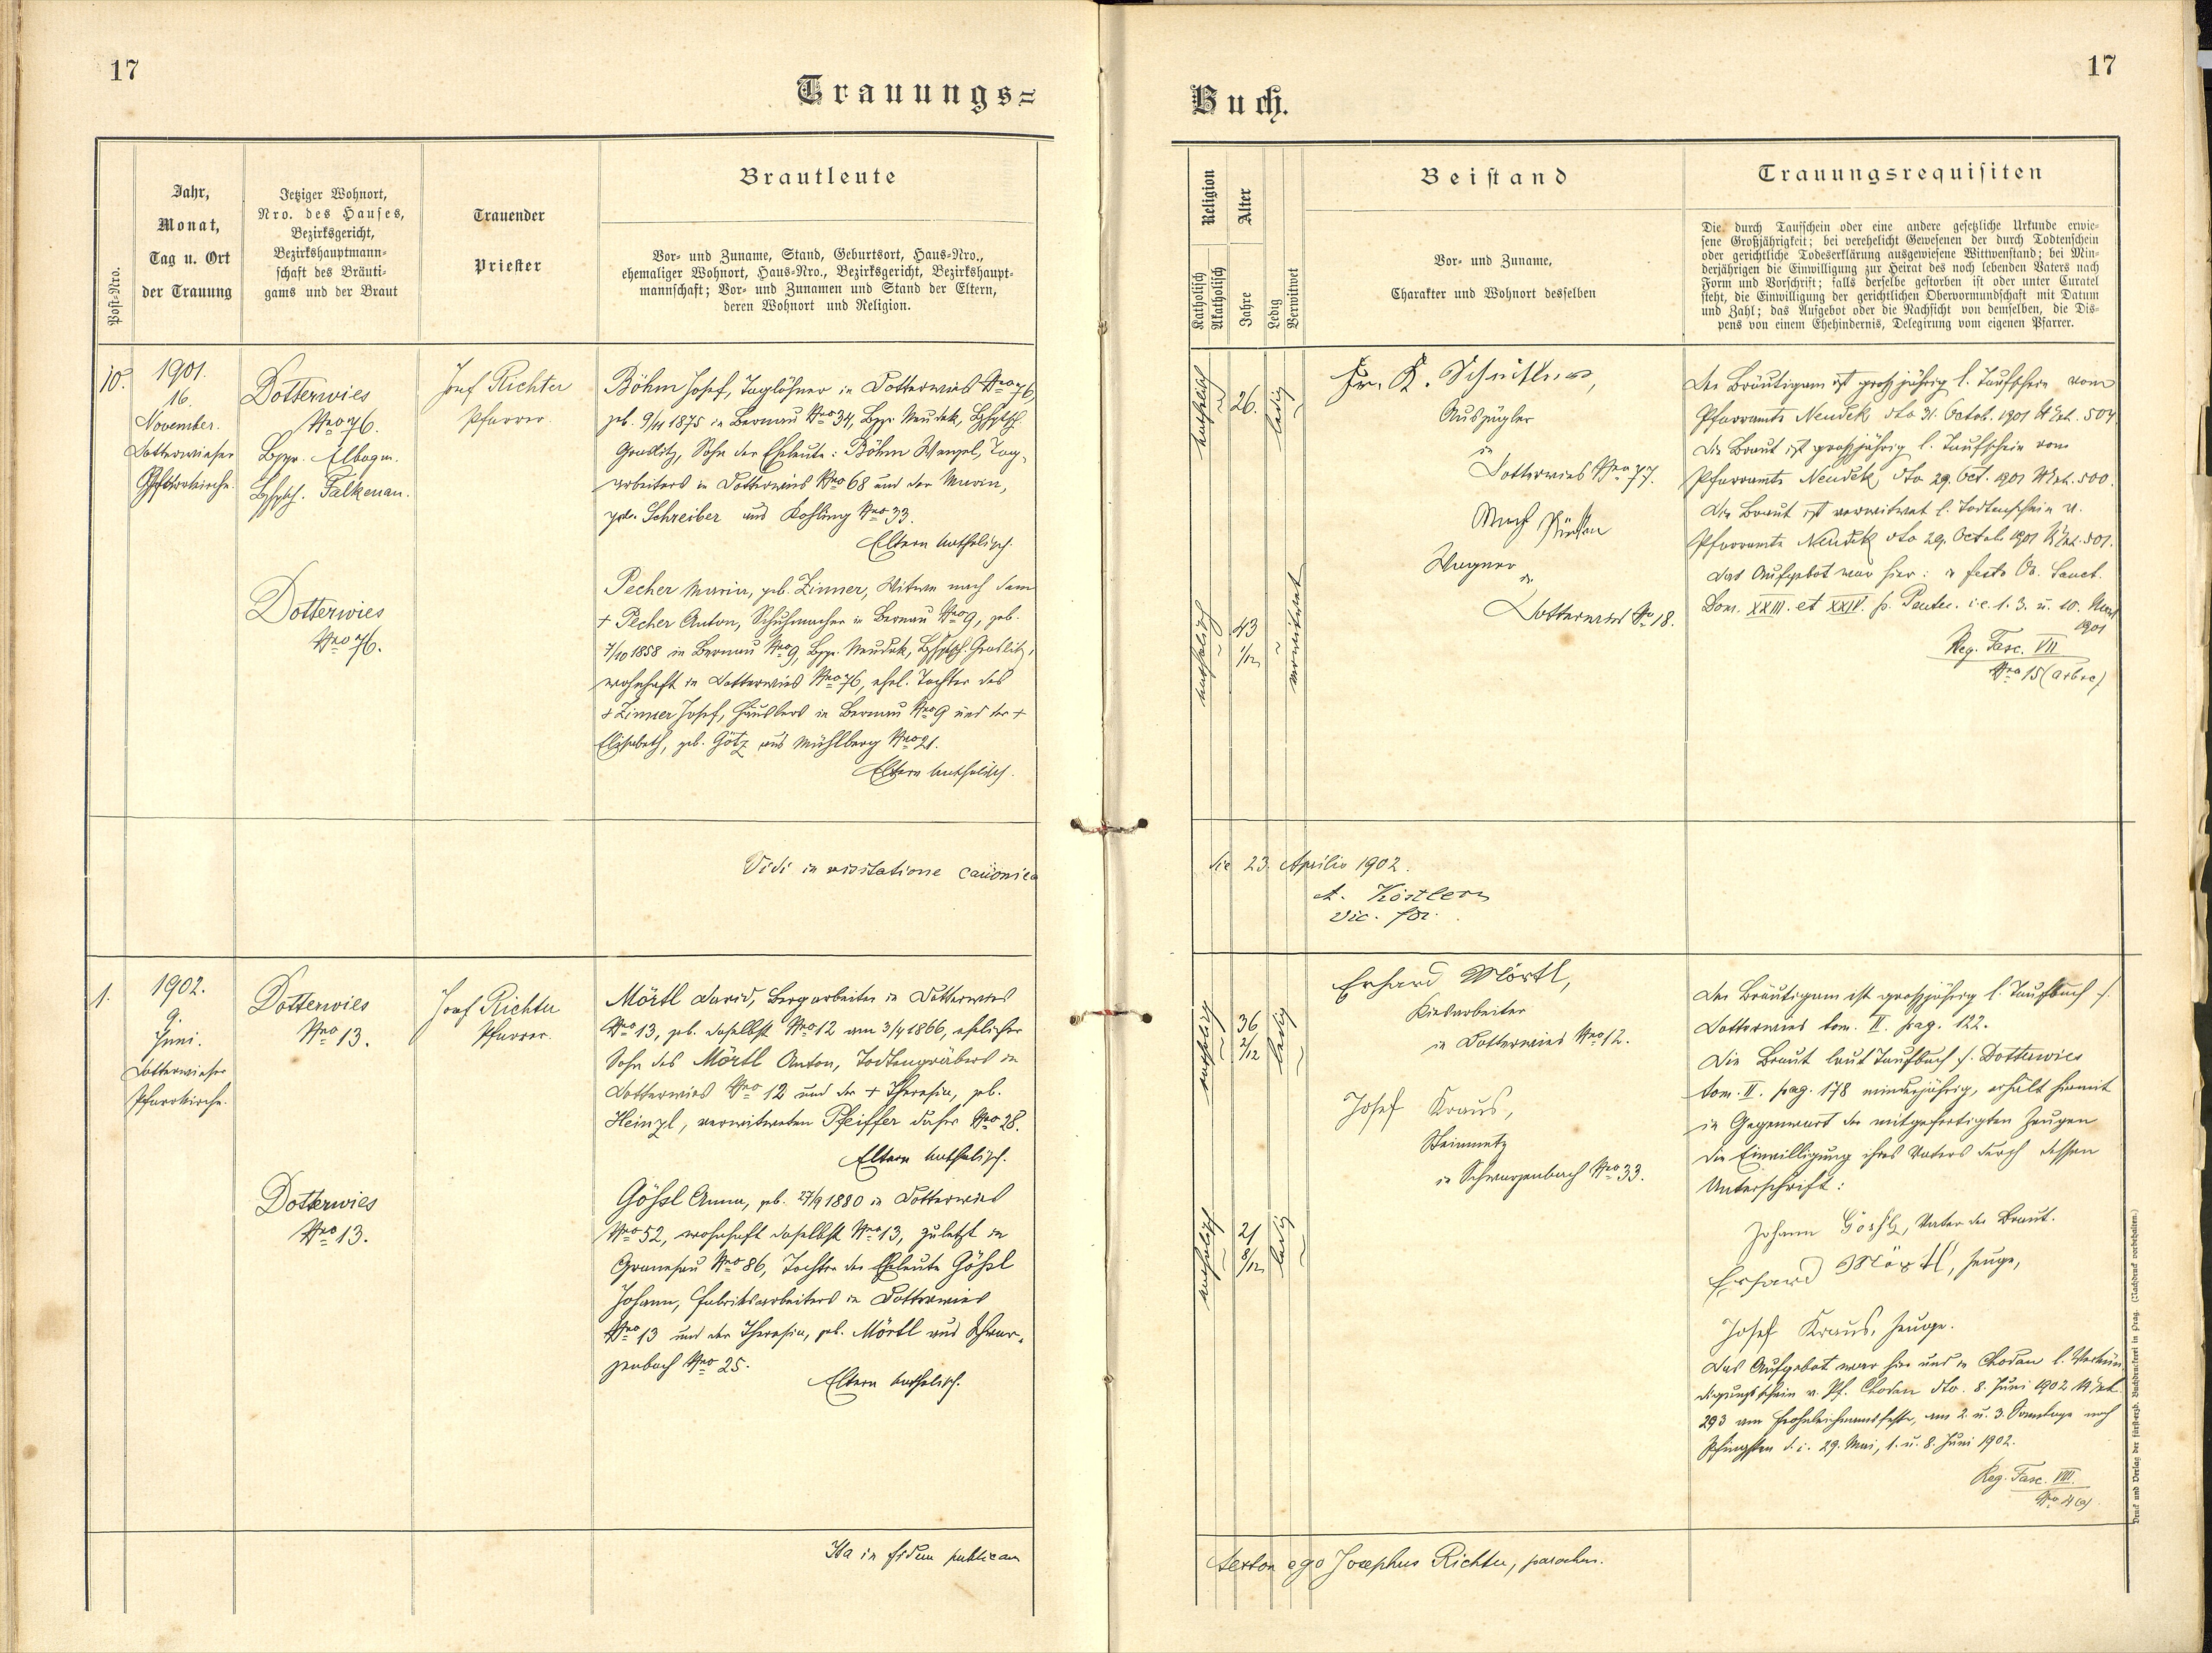 17
17
Trauungs=
Buch.
Post-Nro.
Jahr,
Monat,
Tag u. Ort
der Trauung
Jetziger Wohnort,
Nro. des Hauses,
Bezirksgericht,
Bezirkshauptmann-
schaft des Bräuti-
gams und der Braut
Trauender
Priester
Brautleute
Vor- und Zuname, Stand, Geburtsort, Haus-Nro.,
ehemaliger Wohnort, Haus-Nro., Bezirksgericht, Bezirkshaupt-
mannschaft; Vor- und Zunamen und Stand der Eltern,
deren Wohnort und Religion.
Religion
Katholisch
Akatholisch
Alter
Jahre
Ledig
Verwitwet
Beistand
Vor- und Zuname,
Charakter und Wohnort desselben
Trauungsrequisiten
Die durch Taufschein oder eine andere gesetzliche Urkunde erwie-
sene Großjährigkeit; bei verehelicht Gewesenen der durch Todtenschein
oder gerichtliche Todeserklärung ausgewiesene Wittwenstand; bei Min-
derjährigen die Einwilligung zur Heirat des noch lebenden Vaters nach
Form und Vorschrift; falls derselbe gestorben ist oder unter Curatel
steht, die Einwilligung der gerichtlichen Obervormundschaft mit Datum
und Zahl; das Aufgebot oder die Nachsicht von demselben, die Dis-
pens von einem Ehehindernis, Delegirung vom eigenen Pfarrer.
10.
1901.
16.
November.
Dotterwieser
Pfarrkirche.
Dotterwies
Nro 76.
Bzgr. Elbogen.
Bzhptsch. Falkenau.
Josef Richter
Pfarrer.
Böhm Josef, Taglöhner in Dotterwies Nro 76,
geb. 9/11 1875 in Bernau Nro 34, Bzgr. Neudek, Bzhptsch.
Graslitz, Sohn der Eheleute: Böhm Wenzel, Tag-
arbeiters in Dotterwies Nro 68 und der Maria,
geb. Schreiber aus Kohling Nro 33.
Eltern katholisch.
Dotterwies
Nro 76.
Pecher Maria, geb. Zinner, Witwe nach dem
+ Pecher Anton, Schuhmacher in Bernau Nro 9, geb.
7/10 1858 in Bernau Nro 9, Bzgr. Neudek, Bzhptsch. Graslitz,
wohnhaft in Dotterwies Nro 76, ehel. Tochter des
+ Zinner Josef, Häuslers in Bernau Nro 9 und der +
Elisabeth, geb. Götz aus Mühlberg Nro 21.
Eltern katholisch.
katholisch
26.
ledig
katholisch
43
1/12
verwitwet
Auszügler
in
Dotterwies Nro 77.
Wagner
in
Dotterwies No 18.
Der Bräutigam ist großjährig l. Taufschein vom
Pfarramte Neudek dto 31. Octob. 1901 NExh. 504.
Die Braut ist großjährig l. Taufschein vom
Pfarramte Neudek, dto 29. Oct. 1901 NExh. 500.
Die Braut ist verwitwet l. Todtenschein v.
Pfarramte Neudek dto 29. Octob. 1901 NExh. 501.
Das Aufgebot war hier: a festo Oo. Sanct.
Dom. XXIII. et XXIV. p. Pentec. i. e. 1. 3. u. 10. Nov.
1901
Reg. Fasc. VII
Nro 15 (a+b+c)
Vidi in visitatione canonica
die 23. Aprilis 1902.
A. Köstler
vic. for.
1.
1902.
9.
Juni.
Dotterwieser
Pfarrkirche.
Dotterwies
Nro 13.
Josef Richter
Pfarrer.
Mörtl David, Bergarbeiter in Dotterwies
Nro 13, geb. daselbst Nro 12 am 3/4 1866, ehelicher
Sohn des Mörtl Anton, Todtengräbers in
Dotterwies Nro 12 und der + Theresia, geb.
Heinzl, verwitweten Pfeiffer daher Nro 28.
Eltern katholisch.
Dotterwies
Nro 13.
Gößl Anna, geb. 27/9 1880 in Dotterwies
Nro 52, wohnhaft daselbst Nro 13, zuletzt in
Granesau Nro 86, Tochter der Eheleute Gößl
Johann, Fabriksarbeiters in Dotterwies
Nro 13 und der Theresia, geb. Mörtl aus Schwar-
zenbach Nro 25.
Eltern katholisch.
katholisch
36
2/12
ledig
katholisch
21
8/12
ledig
Erhard Mörtl,
Kiesarbeiter
in Dotterwies Nro 12.
Josef Kraus,
Steinmetz
in Schwarzenbach Nro 33.
Der Bräutigam ist großjährig l. Taufbuch f.
Dotterwies tom. II. pag. 122.
Die Braut laut Taufbuch f. Dotterwies
tom. II. pag. 178 minderjährig, erhält hiemit
in Gegenwart der mitgefertigten Zeugen
die Einwilligung ihres Vaters durch dessen
Unterschrift:
Johann Gößl, Vater der Braut.
Erhard Mörtl, Zeuge,
Josef Kraus, Zeuge.
Das Aufgebot war hier und in Chodau l. Verkün-
digungsschein v. Pf. Chodau dto. 8. Juni 1902 NExh.
293 am Frohnleichnamsfeste, am 2. u. 3. Sonntage nach
Pfingsten d. i. 29. Mai, 1. u. 8. Juni 1902.
Reg. Fasc. VIII.
Nro 4 (a)
Ita in fidem publicam
testor ego Josephus Richter, parochus.
Druck und Verlag der fürst-erzb. Buchdruckerei in Prag. (Nachdruck vorbehalten.)